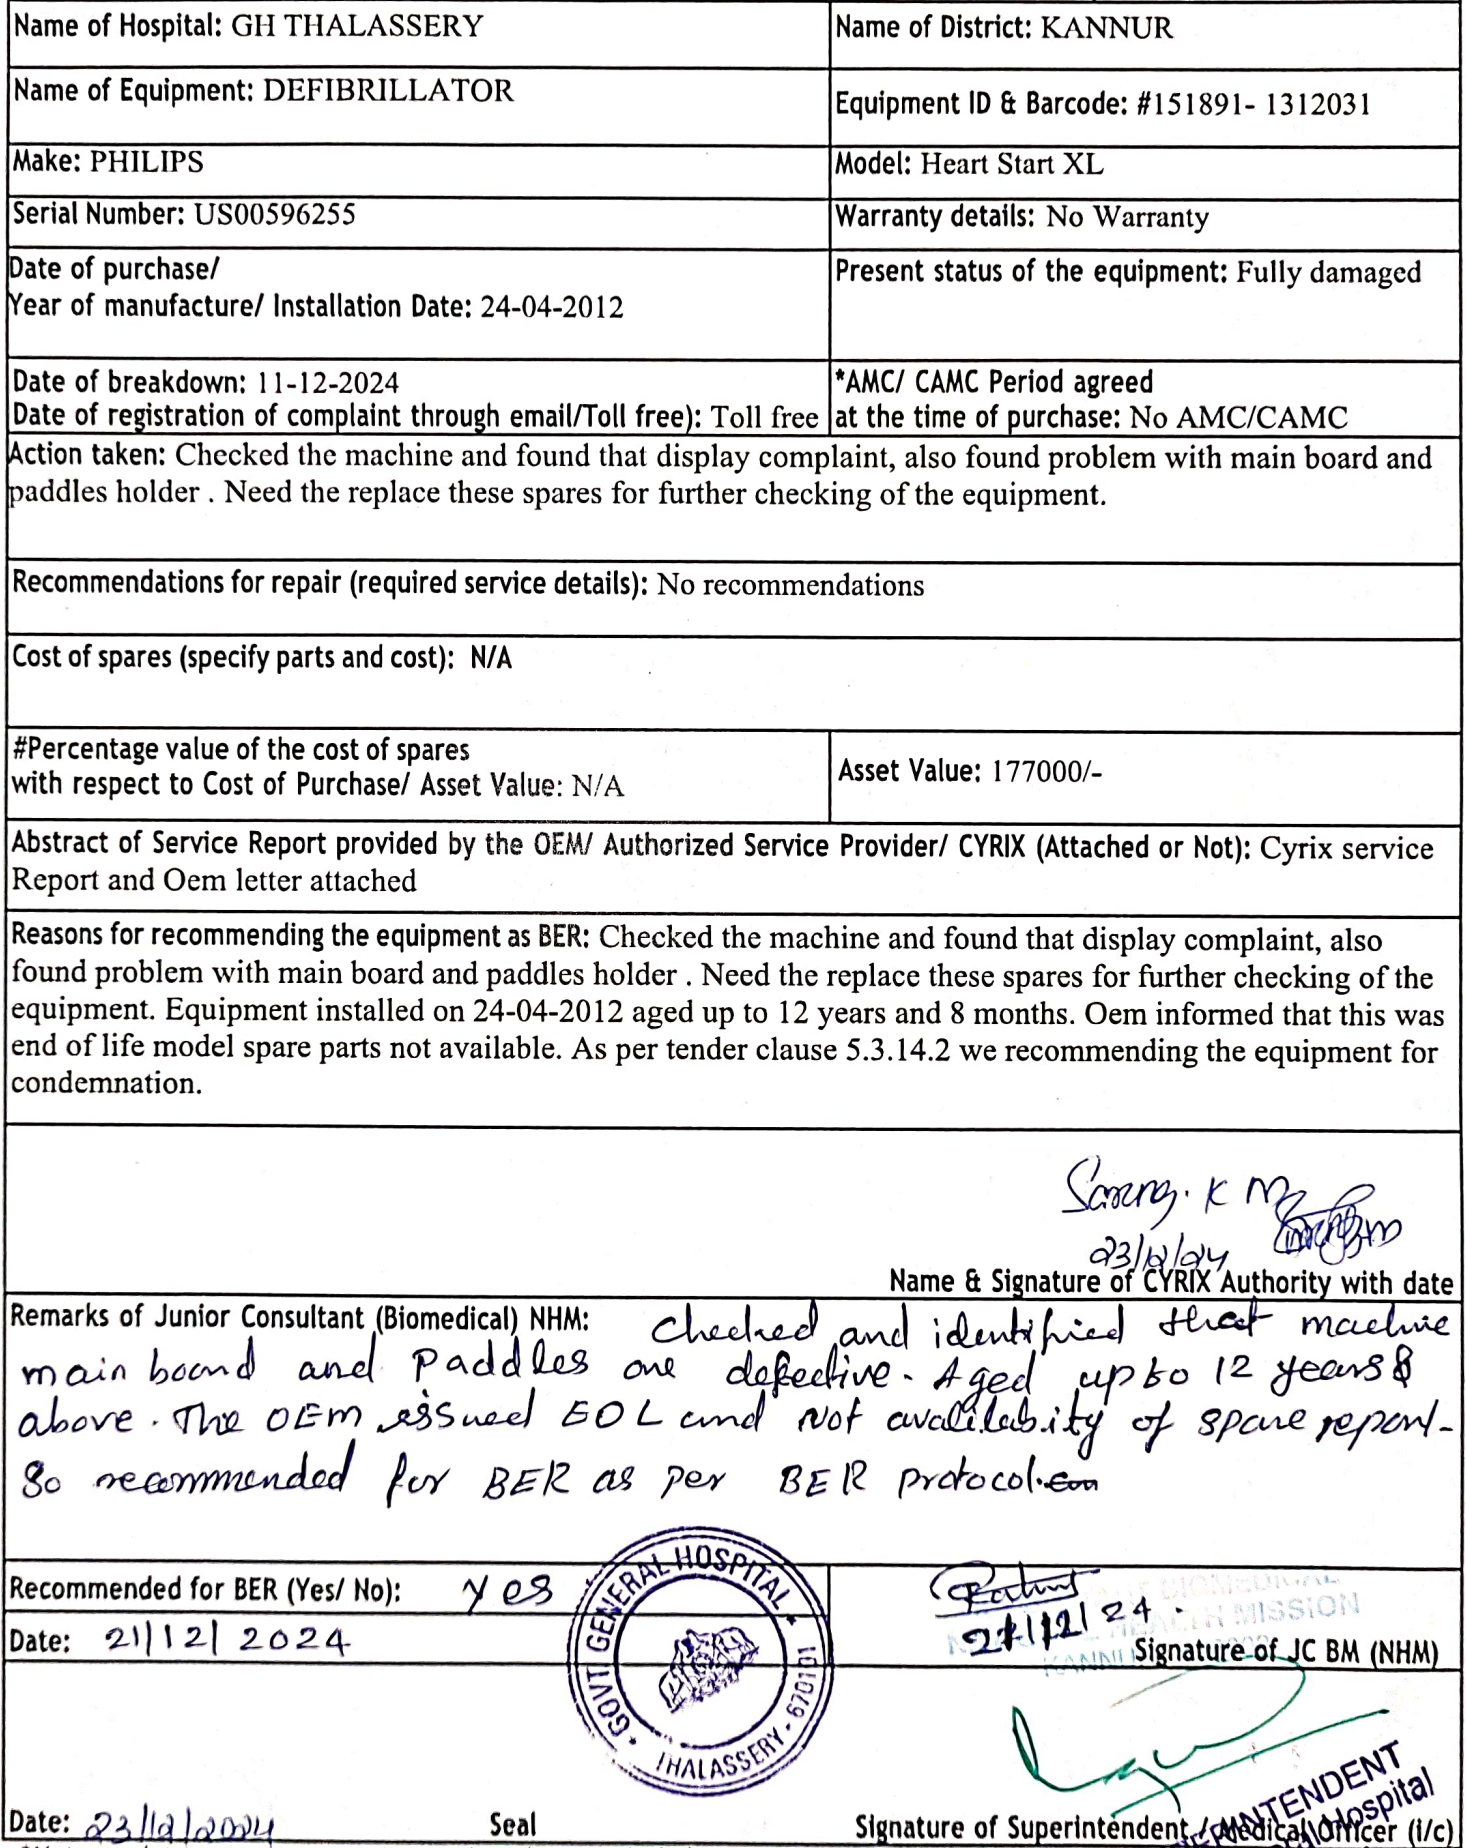 Name of Hospital: GH THALASSERY
Name of District: KANNUR
Name of Equipment: DEFIBRILLATOR
Equipment ID & Barcode: #151891- 1312031
Make: PHILIPS
Model: Heart Start XL
Serial Number: US00596255
Warranty details: No Warranty
Date of purchase/
Year of manufacture/ Installation Date: 24-04-2012
Present status of the equipment: Fully damaged
Date of breakdown: 11-12-2024
Date of registration of complaint through email/Toll free): Toll free
*AMC/ CAMC Period agreed
at the time of purchase: No AMC/CAMC
Action taken: Checked the machine and found that display complaint, also found problem with main board and
paddles holder . Need the replace these spares for further checking of the equipment.
Recommendations for repair (required service details): No recommendations
Cost of spares (specify parts and cost): N/A
#Percentage value of the cost of spares
with respect to Cost of Purchase/ Asset Value: N/A
Asset Value: 177000/-
Abstract of Service Report provided by the OEM/ Authorized Service Provider/ CYRIX (Attached or Not): Cyrix service
Report and Oem letter attached
Reasons for recommending the equipment as BER: Checked the machine and found that display complaint, also
found problem with main board and paddles holder . Need the replace these spares for further checking of the
equipment. Equipment installed on 24-04-2012 aged up to 12 years and 8 months. Oem informed that this was
end of life model spare parts not available. As per tender clause 5.3.14.2 we recommending the equipment for
condemnation.
Sarang. K M
23/12/24
Name & Signature of CYRIX Authority with date
Remarks of Junior Consultant (Biomedical) NHM: checked and identified that machine
main board and paddles are defective. Aged upto 12 years &
above. The OEM issued EOL and Not availability of spare report.
So recommended for BER as per BER protocol.
Recommended for BER (Yes/ No): Yes
Date: 21/12/2024
21/12/24.
HEALTH MISSION
Signature of JC BM (NHM)
GOVT GENERAL HOSPITAL
THALASSERY - 670101
Date: 23/12/2024
Seal
Signature of Superintendent / Medical Officer (i/c)
SUPERINTENDENT
Hospital